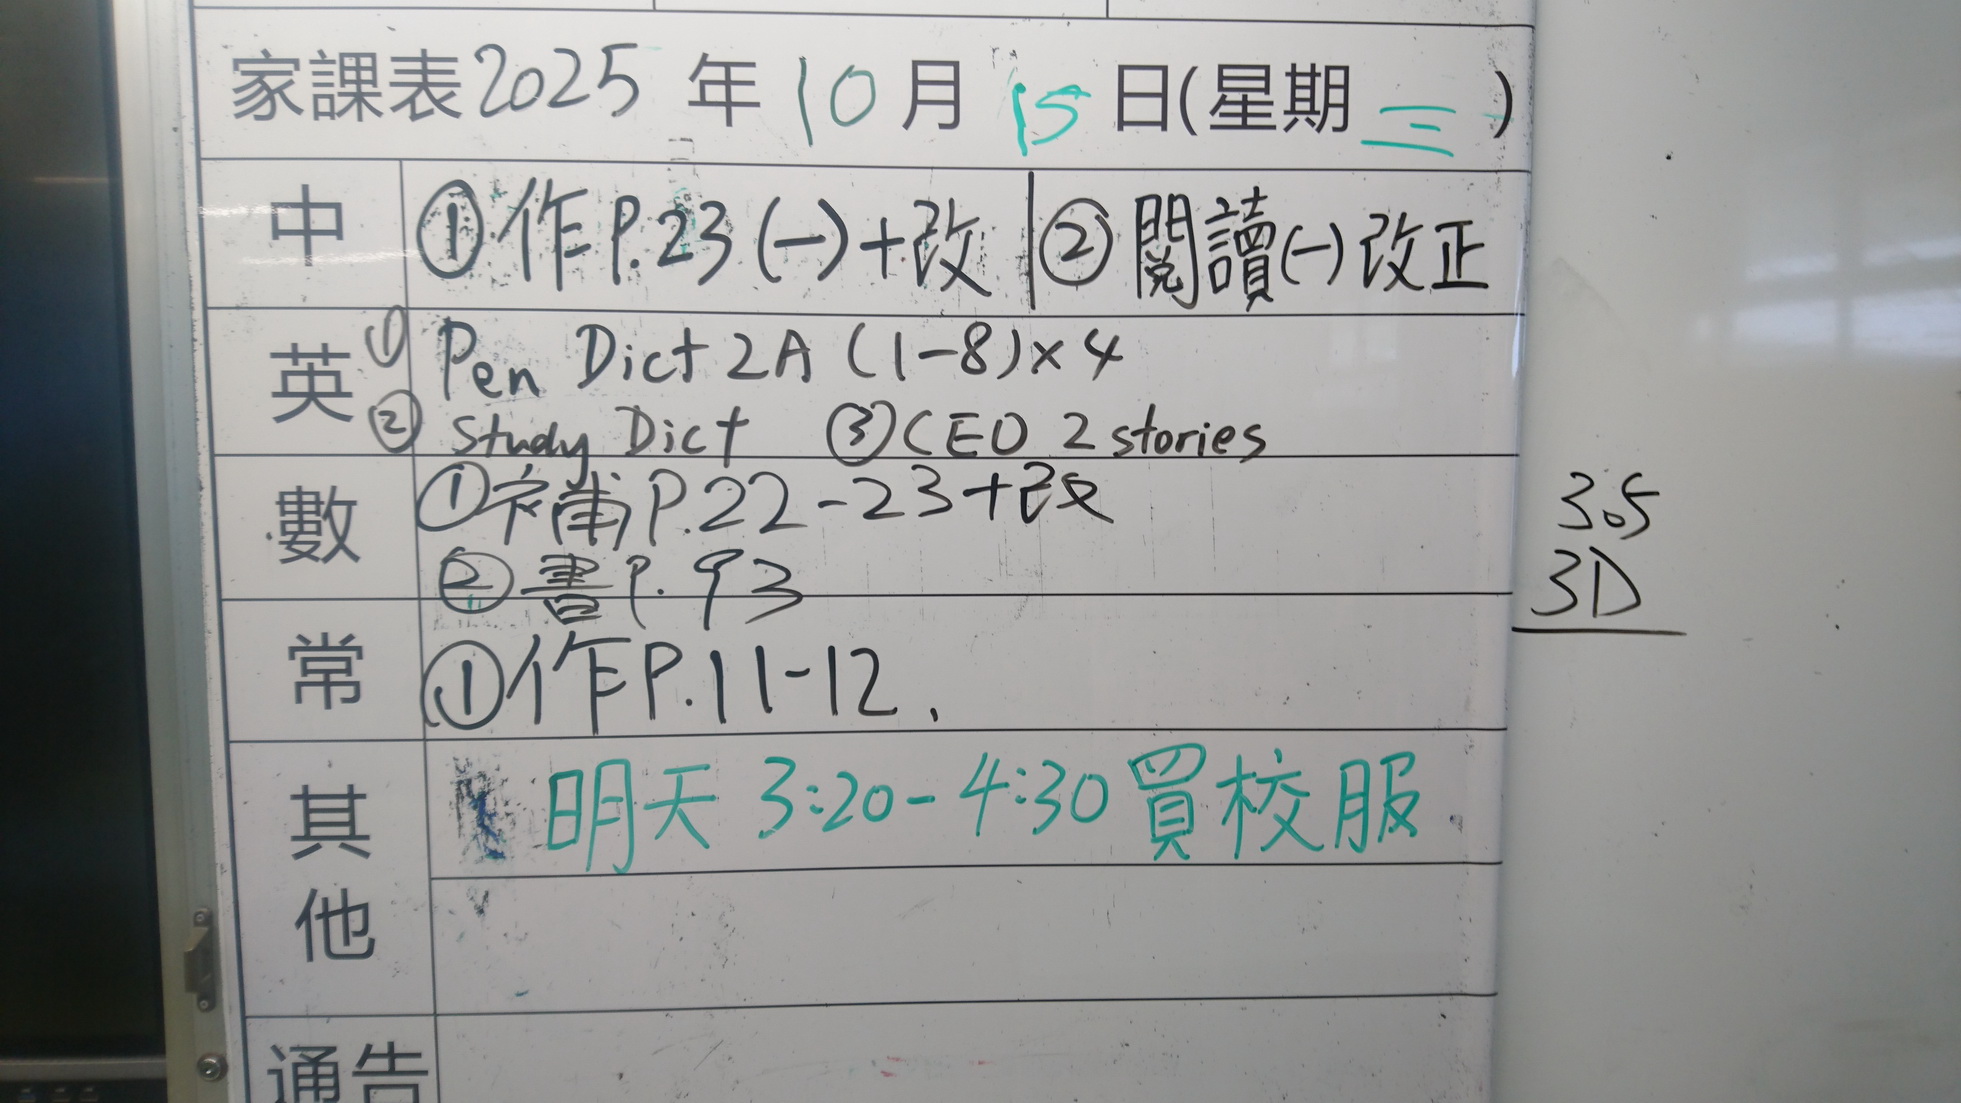 家課表2025年10月15日(星期三)
中 ①作P.23(一)+改 | ②閱讀(一)改正
英 ① Pen Dict 2A (1-8)×4
② Study Dict ③CEO 2 stories
數 ①補P.22-23+改
②書P.93
常 ①作P.11-12.
其他 明天 3:20-4:30買校服
通告
3.5
3D